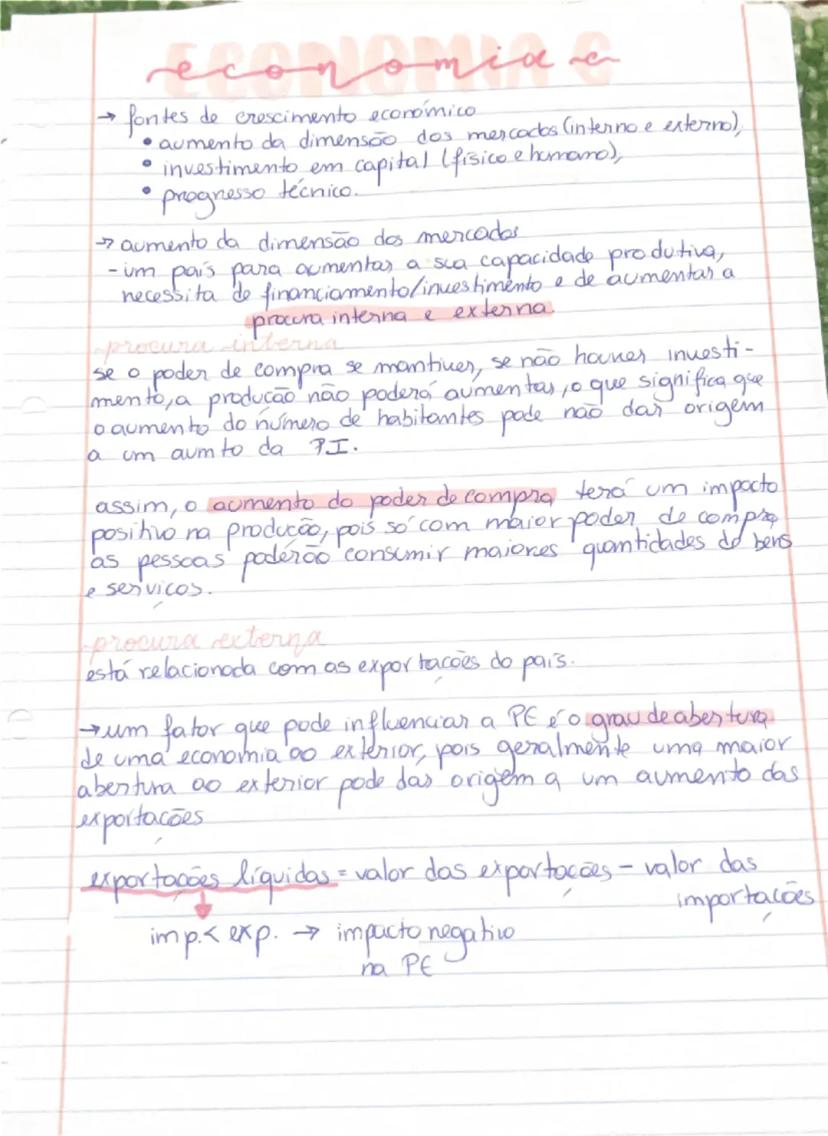 ECONOMIA C
economia c
→ fontes de crescimento económico
• aumento da dimensão dos mercados (interno e externo),
• investimento em capital (físico e humano),
• progresso técnico.
→ aumento da dimensão dos mercados
- um país para aumentar a sua capacidade produtiva,
necessita de financiamento/investimento e de aumentar a
procura interna e externa.
procura interna
se o poder de compra se mantiver, se não houver investi-
mento, a produção não poderá aumentar, o que significa que
o aumento do número de habitantes pode não dar origem
a um aumto da PI.
assim, o aumento do poder de compra, terá um impacto
positivo na produção, pois só com maior poder de compra
as pessoas poderão consumir maiores quantidades de bens
e serviços.
procura externa
está relacionada com as exportações do país.
→ um fator que pode influenciar a PE é o grau de abertura
de uma economia ao exterior, pois geralmente uma maior
abertura ao exterior pode dar origem a um aumento das
exportações
exportações líquidas = valor das exportações - valor das
importações
imp. < exp. → impacto negativo
na PE